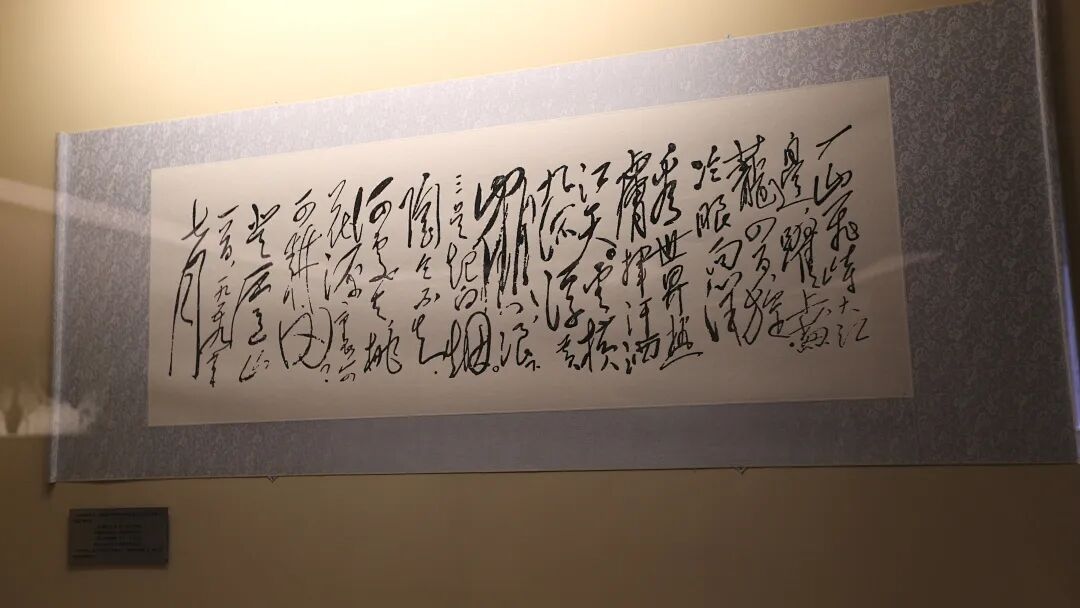 一山飛峙大江
邊，躍上葱
蘢四百旋
冷眼向洋
看世界热
膚挥汗洒
江天。云横
九派浮黄
鹤，浪下
三吴起白烟。
陶令不知
何处去桃
花源裏
可耕田
登庐山
一九五九年
七月